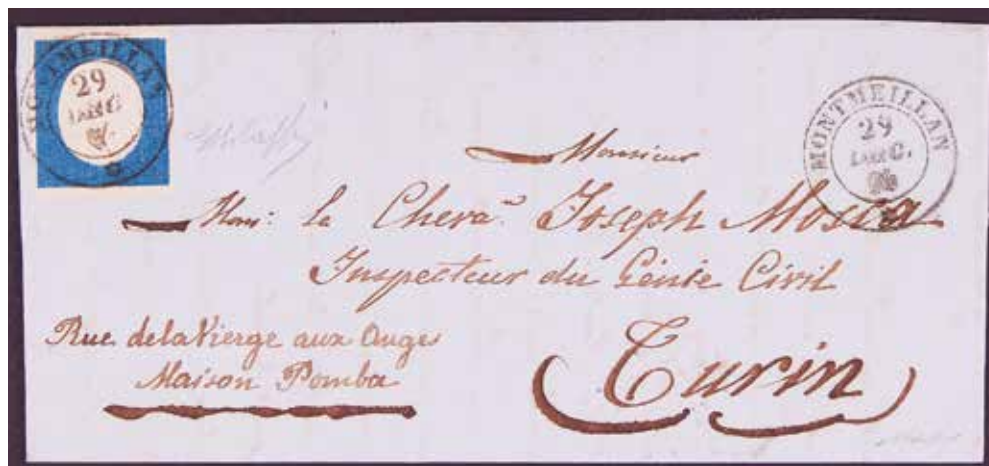 MONTMEILLAN
29
DEC.
MONTMEILLAN
29
DEC.
Monsieur
Mons: le Cheva.r Joseph Mosca
Inspecteur du Génie Civil
Rue de la Vierge aux Anges
Maison Pomba
Turin